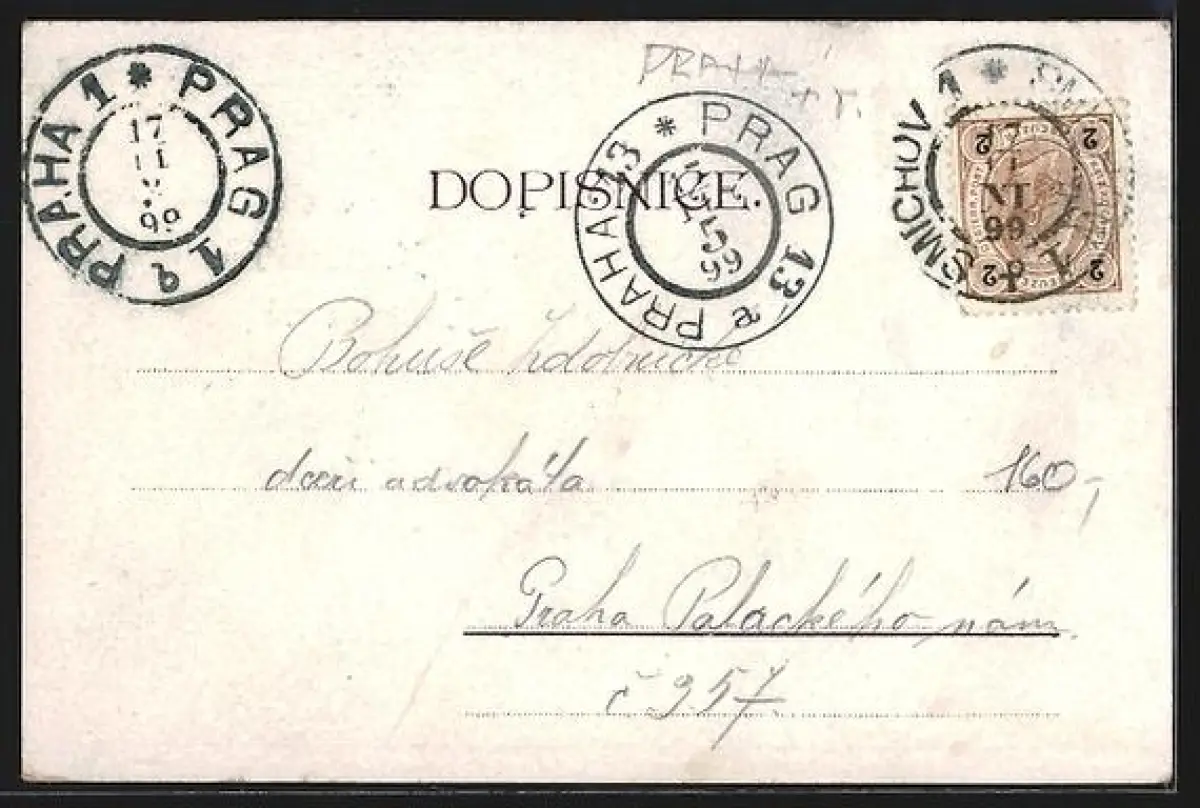 PRAHA
PRAHA 1 * PRAG 1
17
11
99
PRAHA 13 * PRAG 13
5
99
SMICHOV 1 *
17
11
NT
99
2 2
2 2
DOPISNICE.
Bohuše
dceři advokáta
160,-
Praha Palackého nám.
č 957.